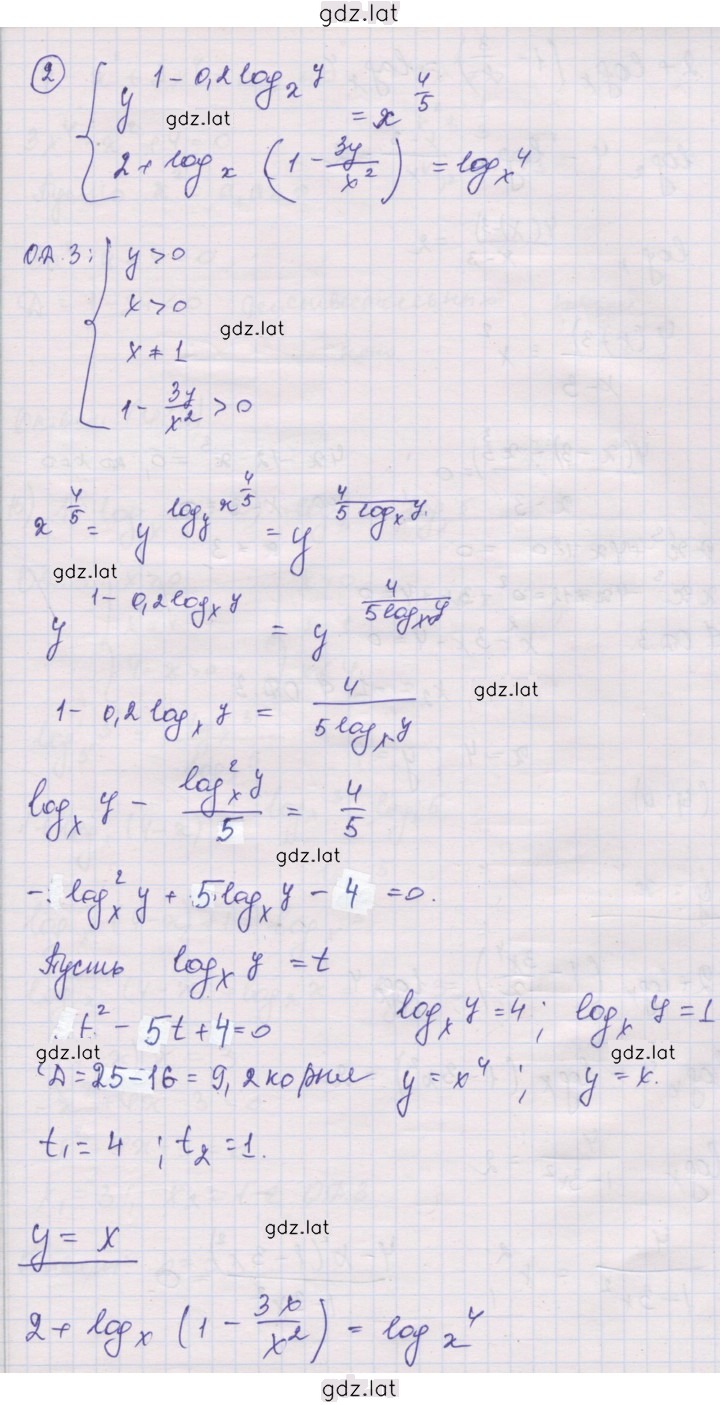 gdz.lat
② { y^(1 - 0,2 log_x y) = x^(4/5)
gdz.lat
2 + log_x (1 - 3y/x²) = log_x 4
О.Д.З: { y > 0
x > 0
gdz.lat
x ≠ 1
1 - 3y/x² > 0
x^(4/5) = y^(log_y x^(4/5)) = y^(4/(5 log_x y)).
gdz.lat
y^(1 - 0,2 log_x y) = y^(4/(5 log_x y))
gdz.lat
1 - 0,2 log_x y = 4/(5 log_x y)
log_x y - log²_x y / 5 = 4/5
gdz.lat
- log²_x y + 5 log_x y - 4 = 0.
Пусть log_x y = t
t² - 5t + 4 = 0 log_x y = 4 ; log_x y = 1
gdz.lat gdz.lat
D = 25 - 16 = 9, 2 корня y = x⁴ ; y = x.
t₁ = 4 ; t₂ = 1.
gdz.lat
y = x
2 + log_x (1 - 3x/x²) = log_x 4
gdz.lat